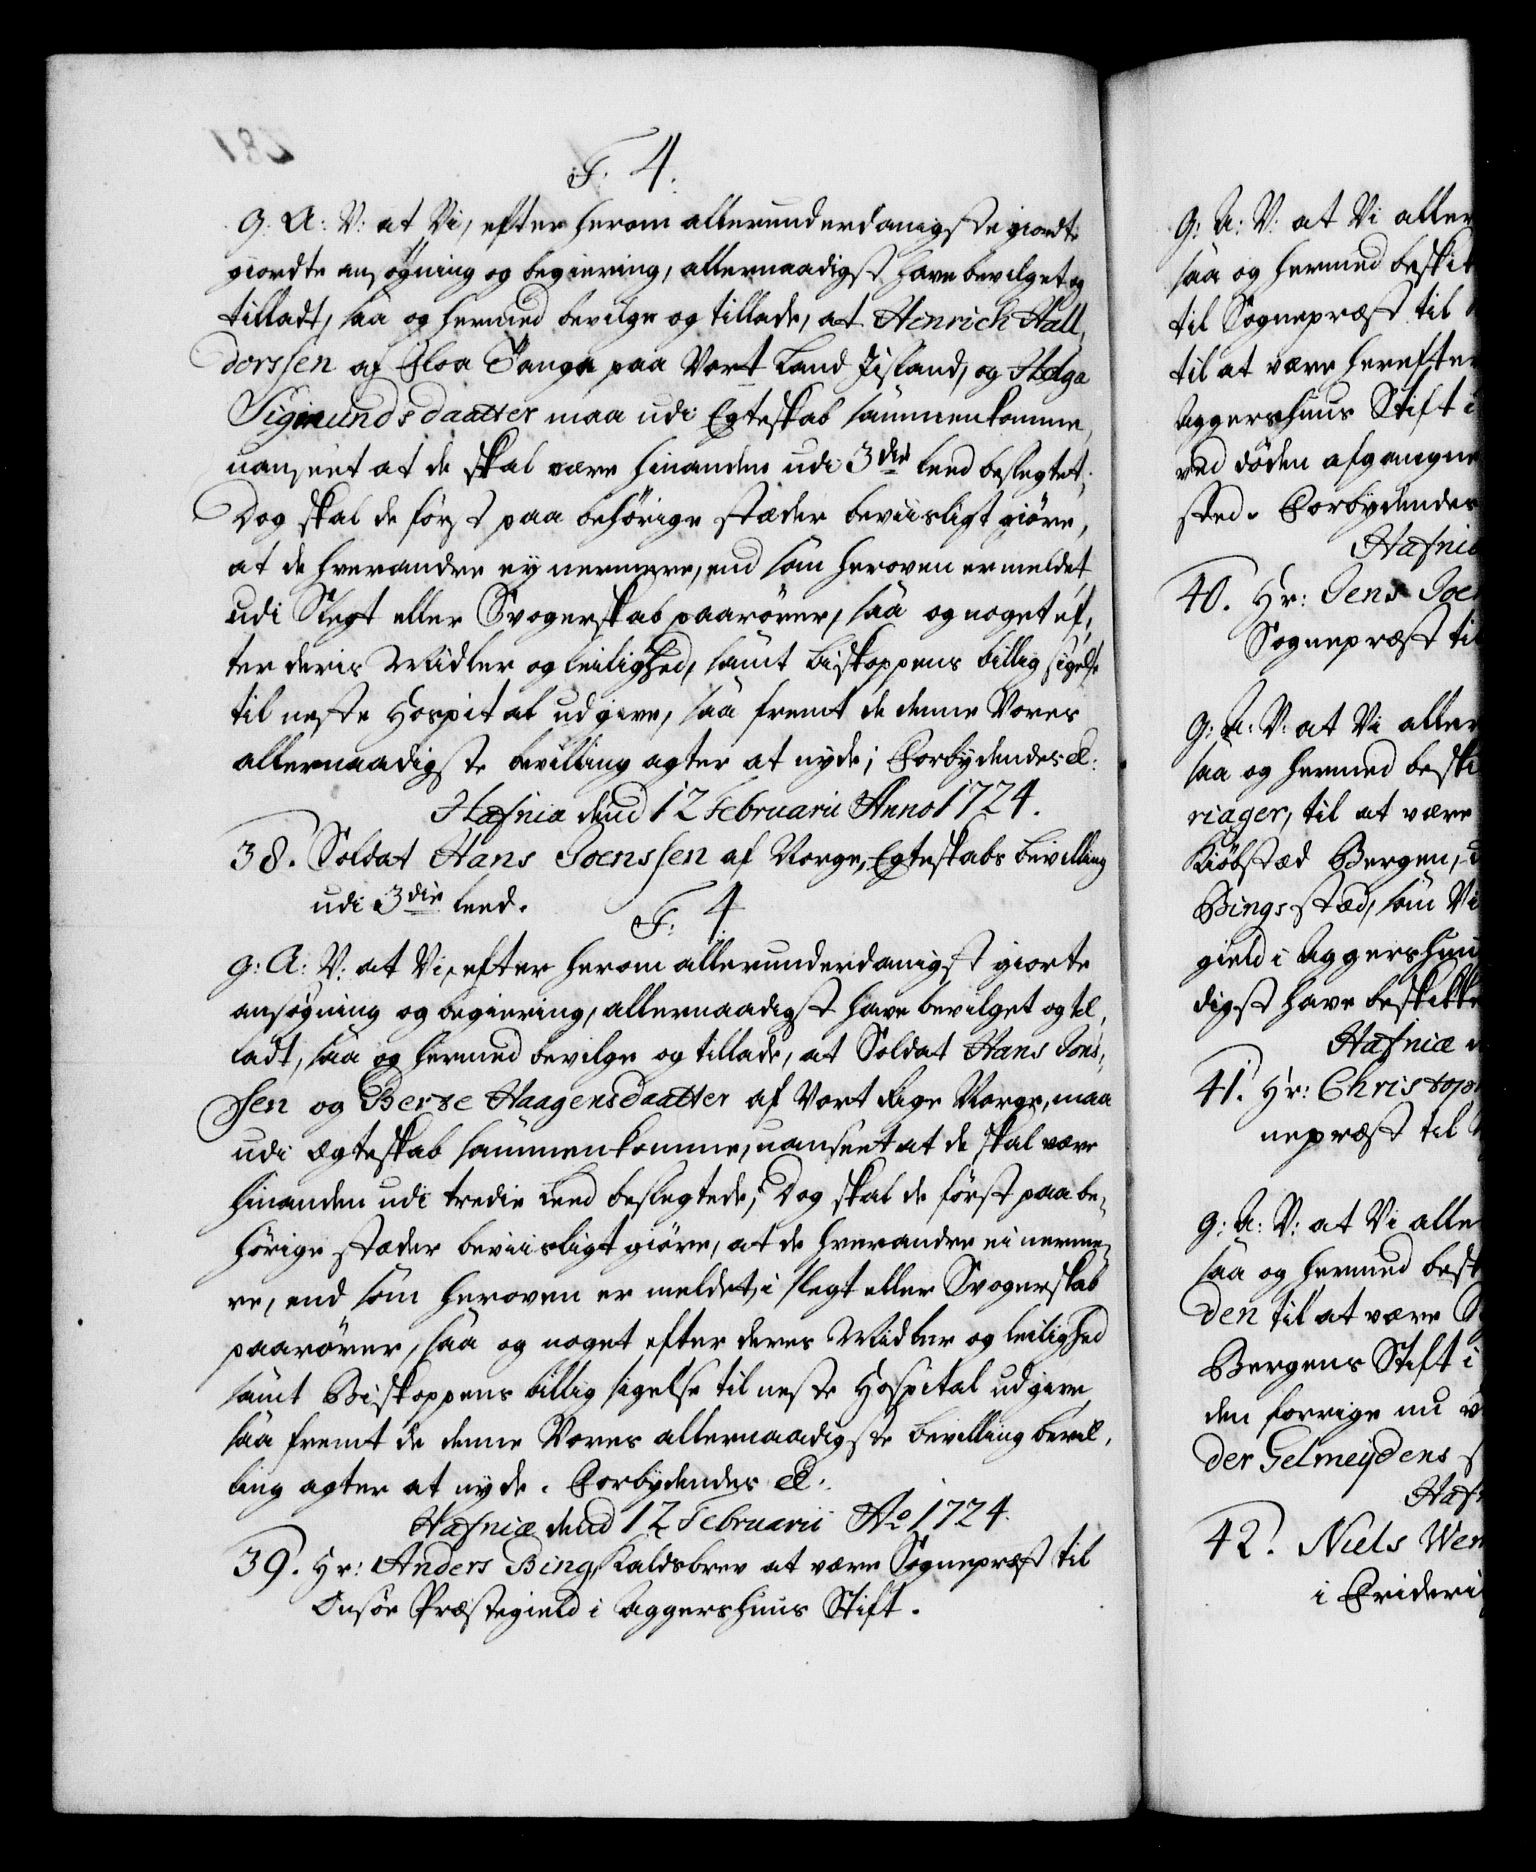 F. 4.
G: A: V: at Vi, efter herom allerunderdanigste giordte
giordte ansøgning og begiering, allernaadigst have bevilget og
tilladt, saa og hermed bevilge og tillade, at Henrich Hall,
dorssen af Floa Tanga paa Vort Land Iisland, og Helga
Sigmundsdaatter maa udi Egteskab sammenkomme,
uanseet at de skal være hinanden udi 3die Leed beslegtet;
Dog skal de først paa behørige stæder beviisligt giøre,
at de hverandre ey nermere, end som heroven er meldet
udi Slegt eller Svogerskab paarører, saa og noget ef,
ter deris Midler og leilighed, samt Biskoppens billig sigelse
til neste Hospital udgive, saa fremt de denne Vores
allernaadigste bevilling agter at nyde; Forbydendes &c:
Hafniæ dend 12 Februarii Anno 1724.
38. Soldat Hans Joenssen af Norge, Egteskabs bevilling
udi 3die leed.
F. 4.
G: A: V: at Vi, efter herom allerunderdanigst giorte
ansøgning og begiering, allernaadigst have bevilget og til,
ladt, saa og hermed bevilge og tillade, at Soldat Hans Jons,
sen og Berte Haagensdaatter af Vort Rige Norge, maa
udi Ægteskab sammenkomme, uanseet at de skal være
hinanden udi tredie Leed beslegtede; Dog skal de først paa be,
hørige stæder beviisligt giøre, at de hverandre ei nerme,
re, end som heroven er meldet, i slegt eller Svogerskab
paarører, saa og noget efter deres Midler og leilighed
samt Biskoppens billig sigelse til neste Hospital udgive,
saa fremt de denne Vores allernaadigste bevilling bevil,
ling agter at nyde. Forbydendes &c:
Hafniæ dend 12 Februarii Ao 1724.
39. Hr: Anders Bing, Kaldsbrev at være Sogneprest til
Onsøe Præstegield i Aggershuus Stift.
G: A: V: at Vi aller
saa og hermed beskik
til Sognepræst til
til at være herefter
Aggershuus Stift i
ved døden afgangne
sted. Forbydendes
Hafniæ
40. Hr: Jens Joe
Sognepræst til
G: A: V: at Vi aller
saa og hermed beski
riager, til at være
Kiøbstæd Bergen,
Bings stæd, som Vi
gield i Aggershuu
digst have beskikke
Hafniæ d
41. Hr: Christop
nepræst til
G: A: V: at Vi alle
saa og hermed besk
den til at være S
Bergens Stift i
den forrige nu v
der Gelmeydens s
Hafn
42. Niels Wen
i Frideri